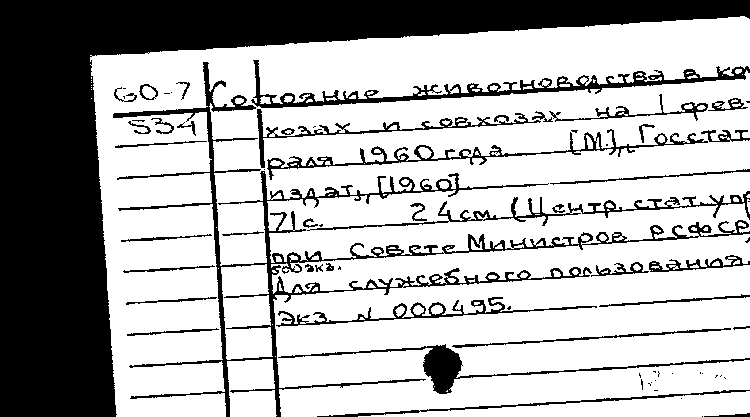 60-7 Состояние животноводства в кол
534 хозах и совхозах на 1 фев-
раля 1960 года. [М.], Госстат
издат, [1960].
71 с. 24 см. (Центр. стат. упр
при Совете Министров РСФСР)
500 экз.
Для служебного пользования.
Экз. N 000495.